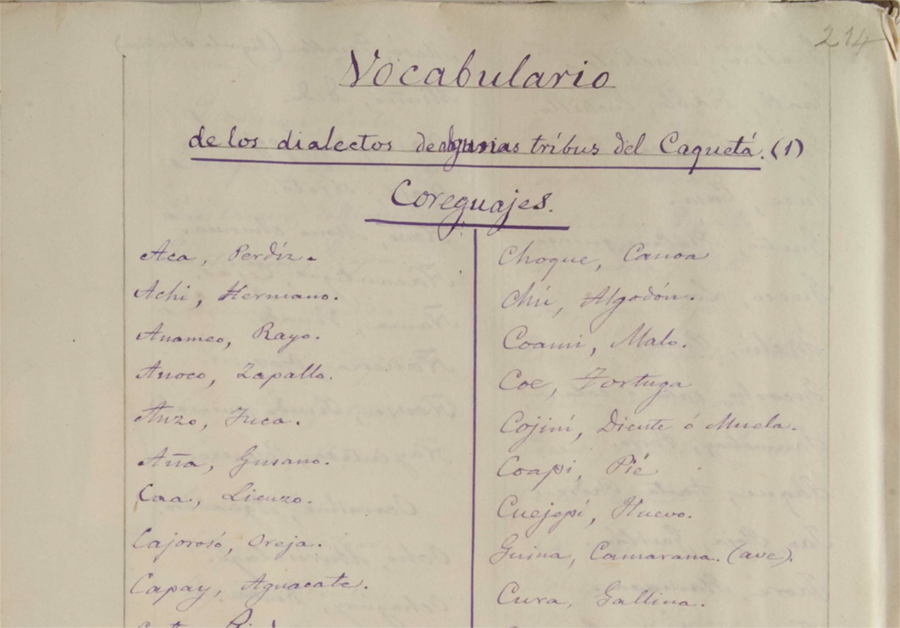 214
Vocabulario
de los dialectos de algunas tribus del Caquetá. (1)
Coreguajes.
Aca, Perdíz.
Achi, Hermano.
Anameo, Rayo.
Anoco, Zapallo.
Anzo, Yuca.
Aña, Gusano.
Caa, Lienzo.
Cajorosó, Oreja.
Capay, Aguacate.
Choque, Canoa
Chú, Algodón.
Coami, Malo.
Coe, Tortuga
Cojiní, Diente ó Muela.
Coapi, Pié
Cuejepí, Huevo.
Guina, Camarana. (ave).
Cura, Gallina.